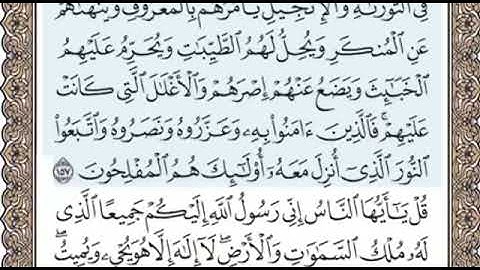 فِي التَّوْرَىٰةِ وَالْإِنجِيلِ يَأْمُرُهُم بِالْمَعْرُوفِ وَيَنْهَىٰهُمْ
عَنِ الْمُنكَرِ وَيُحِلُّ لَهُمُ الطَّيِّبَٰتِ وَيُحَرِّمُ عَلَيْهِمُ
الْخَبَٰٓئِثَ وَيَضَعُ عَنْهُمْ إِصْرَهُمْ وَالْأَغْلَٰلَ الَّتِي كَانَتْ
عَلَيْهِمْ ۚ فَالَّذِينَ ءَامَنُوا۟ بِهِۦ وَعَزَّرُوهُ وَنَصَرُوهُ وَاتَّبَعُوا۟
النُّورَ الَّذِىٓ أُنزِلَ مَعَهُۥٓ ۙ أُو۟لَٰٓئِكَ هُمُ الْمُفْلِحُونَ ١٥٧
قُلْ يَٰٓأَيُّهَا النَّاسُ إِنِّى رَسُولُ اللَّهِ إِلَيْكُمْ جَمِيعًا الَّذِى
لَهُۥ مُلْكُ السَّمَٰوَٰتِ وَالْأَرْضِ ۖ لَآ إِلَٰهَ إِلَّا هُوَ يُحْىِۦ وَيُمِيتُ ۖ